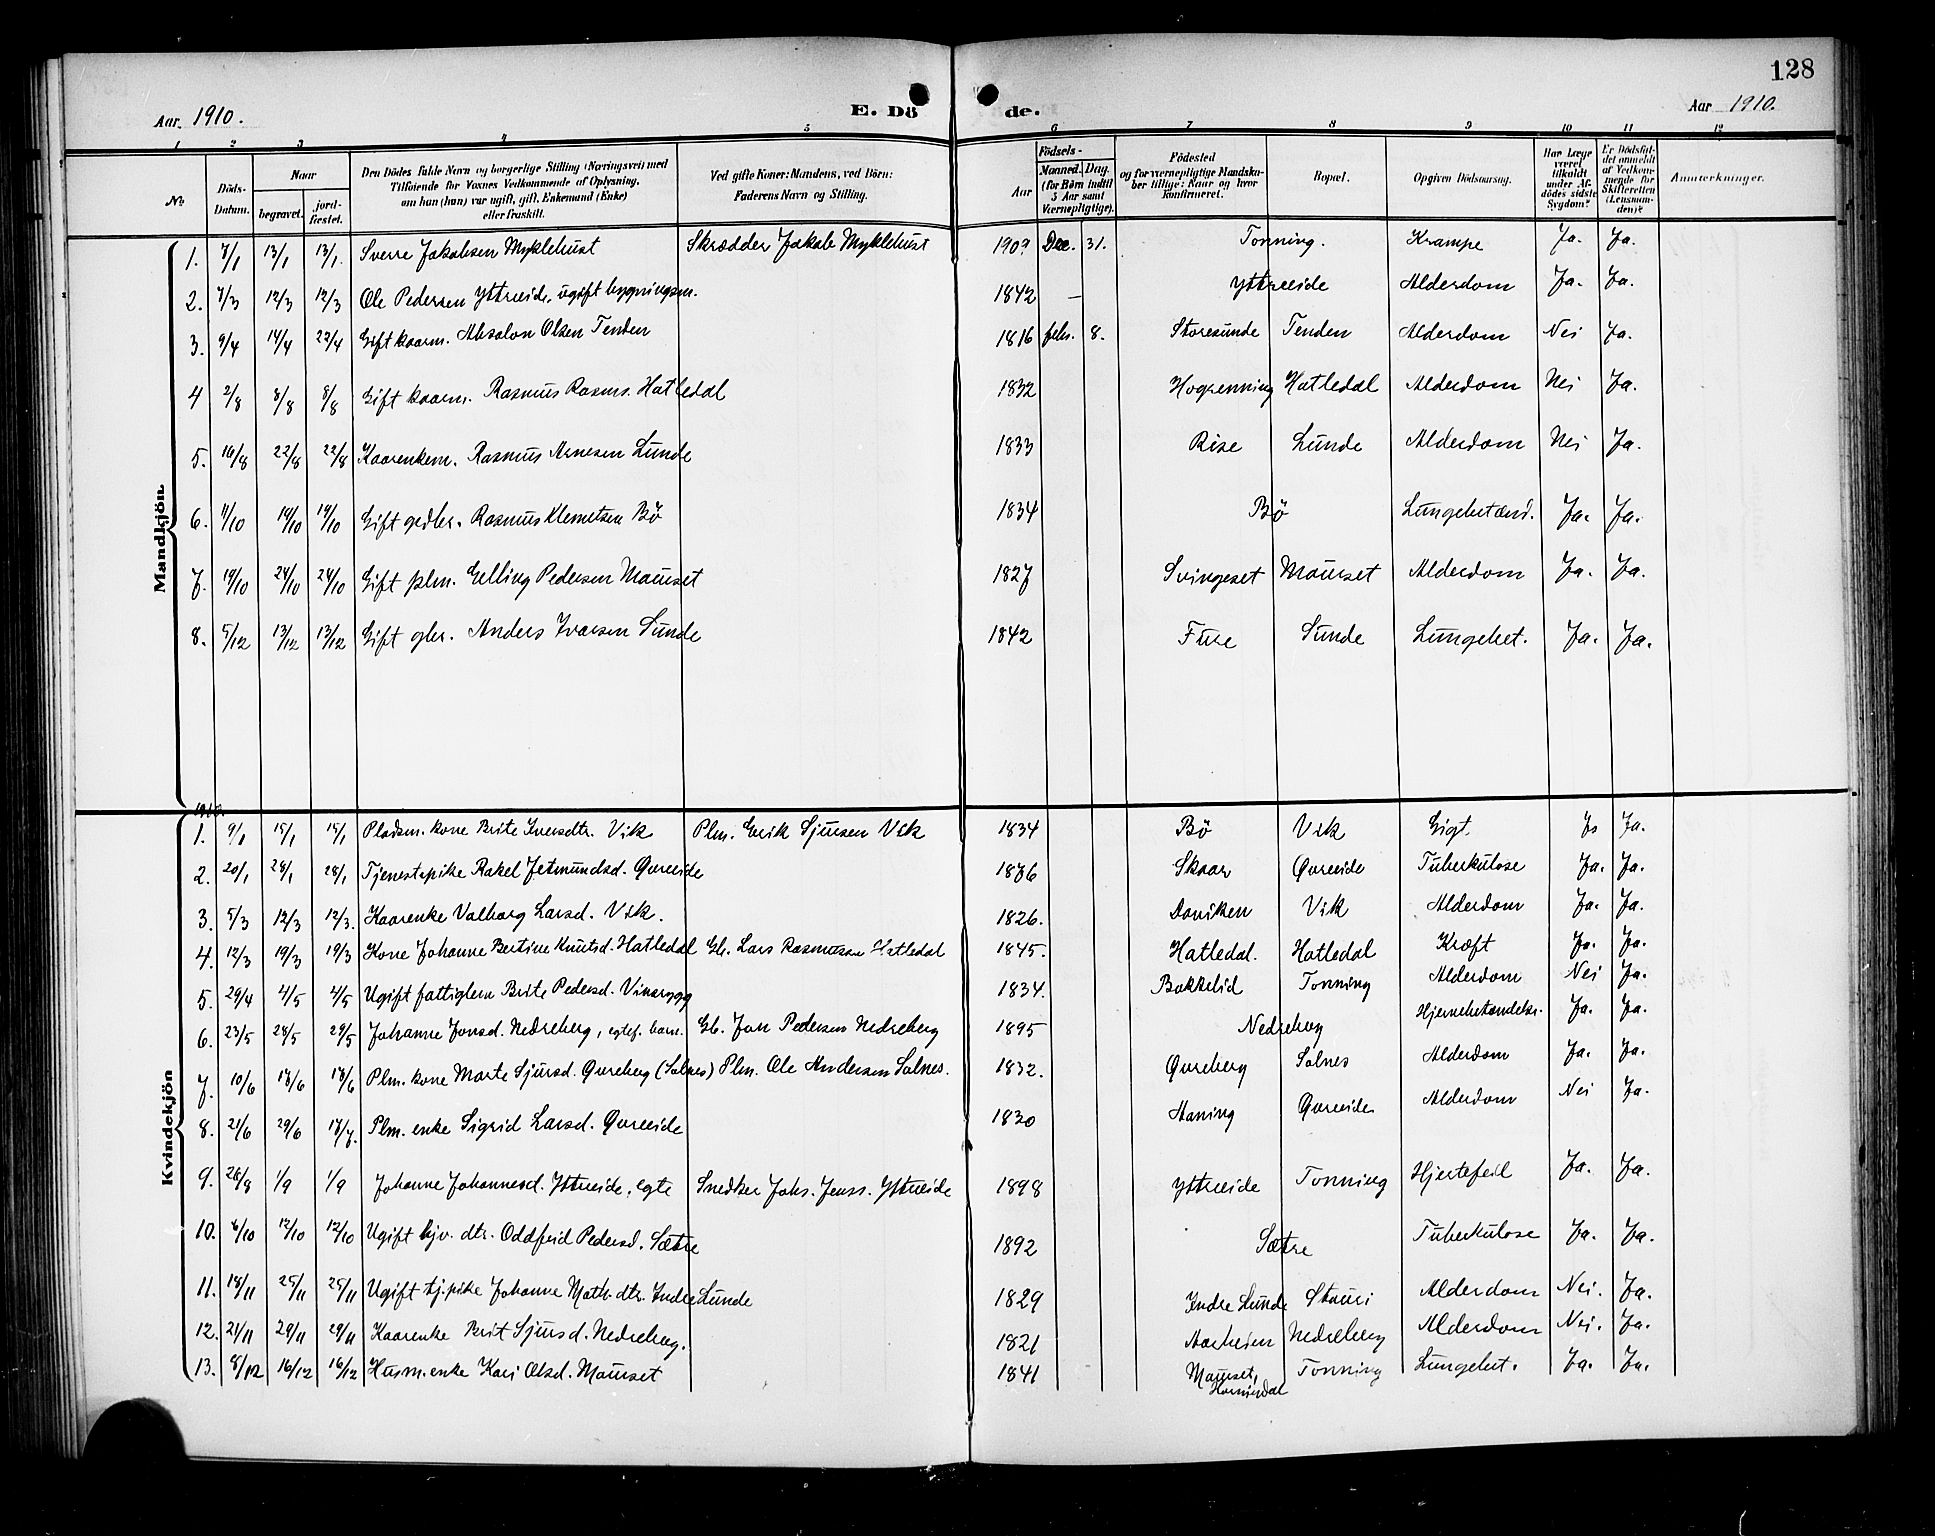 128
Aar. 1910. E. Dö de. Aar 1910.
1 2 3 4 5 6 7 8 9 10 11 12
№ Döds-Datum. Naar begravet. jordfæstet. Den Dödes fulde Navn og borgerlige Stilling (Næringsvei) med Tilföiende for Voxnes Vedkommende af Oplysning, om han (hun) var ugift, gift, Enkemand (Enke) eller fraskilt. Ved gifte Koner: Mandens, ved Börn: Faderens Navn og Stilling. Aar Födsels- Maaned. Dag. (for Börn indtil 5 Aar samt Værnepligtige). Födested og for værnepligtige Mandskaber tillige: Naar og hvor konfirmeret. Bopæl. Opgiven Dödsaarsag. Har Læge været tilkaldt under Afdödes sidste Sygdom? Er Dödsfaldet anmeldt af Vedkommende for Skifteretten (Lensmanden)? Anmerkninger.
Mandkjön.
1. 7/1 13/1 13/1. Sverre Jakobsen Myklebust Skrædder Jakob Myklebust 1909 Dec. 31. Tonning. Krampe Ja. Ja.
2. 7/3 12/3 12/3 Ole Pedersen Yttreeide, ugift bygningsm. 1842 — Yttreeide Alderdom Ja. Ja.
3. 9/4 14/4 22/4 Gift kaarm. Absalon Olsen Tenden 1816 febr. 8. Storesunde Tenden Alderdom Nei Ja.
4 2/8 8/8 8/8 Gift kaarm. Rasmus Rasms. Hatledal 1832 Hogrenning Hatledal Alderdom Nei Ja.
5. 16/8 22/8 22/8 Kaarenkem. Rasmus Arnesen Lunde 1833 Rise Lunde Alderdom Nei Ja.
6. 11/10 19/10 19/10 Gift gedbr. Rasmus Klemetsen Bö 1834 Bö Lungebetænd. Ja. Ja.
7. 19/10 24/10 24/10 Gift plm. Elling Pedersen Maurset 1827 Svingeset Maurset Alderdom Ja. Ja.
8. 5/12 13/12 13/12 Gift gbr. Anders Ivarsen Sunde 1842 Fure Sunde Lungebet. Ja. Ja.
Kvindekjön
1910.
1. 9/1 15/1 15/1 Pladsm. kone Brite Iversdtr. Vik Plm. Erik Sjursen Vik 1834 Bö Vik Gigt. Ja Ja.
2. 20/1 28/1 28/1 Tjenestepike Rakel Jetmundsd. Øvreeide 1876 Skaar Øvreeide Tuberkulose Ja. Ja.
3. 5/3 12/3 12/3. Kaarenke Valborg Larsd. Vik. 1826. Daviken Vik Alderdom Ja. Ja.
4. 12/3 19/3 19/3 Kone Johanne Bertine Knutsd. Hatledal Gb. Lars Rasmussen Hatledal 1845. Hatledal. Hatledal Kræft Ja. Ja.
5. 29/4 4/5 4/5 Ugift fattiglem Brite Pedersd. Vinsrygg 1834. Bakkelid Tonning Alderdom Nei Ja.
6. 23/5 28/5 29/5 Johanne Jonsd. Nedreberg, egtef. barn. Gb. Jon Pedersen Nedreberg 1895 Nedreberg Hjernebetændelse. Ja. Ja.
7. 10/6 18/6 18/6 Plm. kone Marte Sjursd. Øvreberg (Solnes) Plm. Ole Andersen Solnes. 1832. Øvreberg Solnes Alderdom Ja. Ja.
8. 21/6 29/6 17/7. Plm. enke Sigrid Larsd. Øvreeide 1830 Haning Øvreeide Alderdom Nei Ja.
9. 28/8 1/9 1/9 Johanne Johannesd. Yttreeide, egte Snedker Johs. Jenss. Yttreeide 1898 Yttreeide Tonning Hjertefeil Ja. Ja.
10. 6/10 12/10 12/10 Ugift hjv. dtr. Oddfrid Pedersd. Sætre 1892 Sætre Tuberkulose Ja. Ja.
11. 18/11 25/11 25/11 Ugift tj. pike Johanne Math. dtr. Indre Lunde 1829 Indre Lunde Stauri Alderdom Nei. Ja.
12. 21/11 29/11 29/11 Kaarenke Brit Sjursd. Nedreberg. 1821 Aarheim Nedreberg Alderdom Nei. Ja.
13. 8/12 16/12 16/12 Husm. enke Kari Olsd. Maurset 1841 Maurset, Hornindal Tonning Lungebet. Ja. Ja.